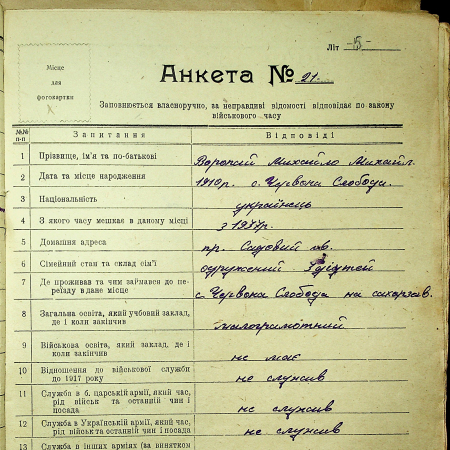 Літ -5-
Місце
для
фотокартки
Анкета № 21.
Заповнюється власноручно, за неправдиві відомості відповідає по закону
військового часу
№№ п-п Запитання Відповіді
1 Прізвище, ім'я та по-батькові Воропай Михайло Михайл.
2 Дата та місце народження 1910р. с. Червона Слобода.
3 Національність українець
4 З якого часу мешкає в даному місці з 1937р.
5 Домашня адреса пр. Садовий
6 Сімейний стан та склад сім'ї одружений дітей
7 Де проживав та чим займався до пе-
реїзду в дане місце с. Червона Слобода на сахарзав.
8 Загальна освіта, який учбовий заклад,
де і коли закінчив малограмотний
9 Військова освіта, який заклад, де і
коли закінчив не має
10 Відношення до військової служби
до 1917 року не служив
11 Служба в б. царській армії, який час,
рід військ та останній чин і
посада не служив
12 Служба в Українській армії, який час,
рід військ та останній чин і посада не служив
13 Служба в інших арміях (за винятком